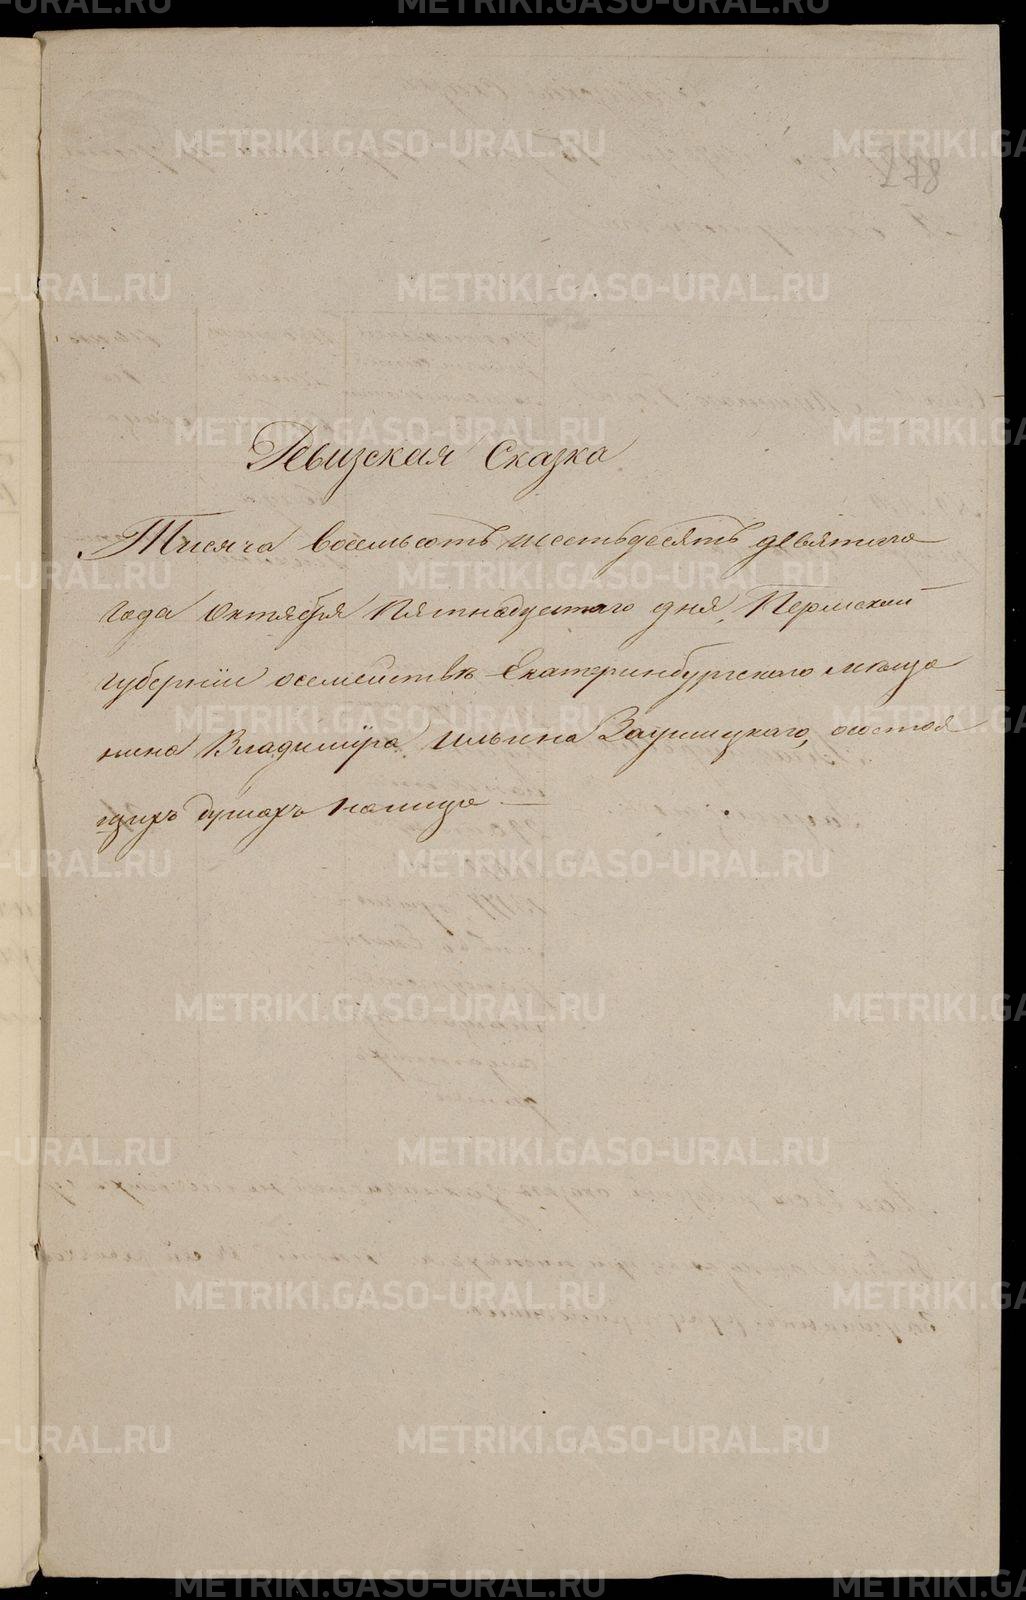 778
Ревизская Сказка
Тысяча восемьсотъ шестьдесятъ девятаго
года Октября пятнадцатаго дня, Пермской
губерніи осемействѣ Екатеринбургскаго мѣща
нина Владиміра Ильина осостоя
щихъ душахъ налицо
METRIKI.GASO-URAL.RU